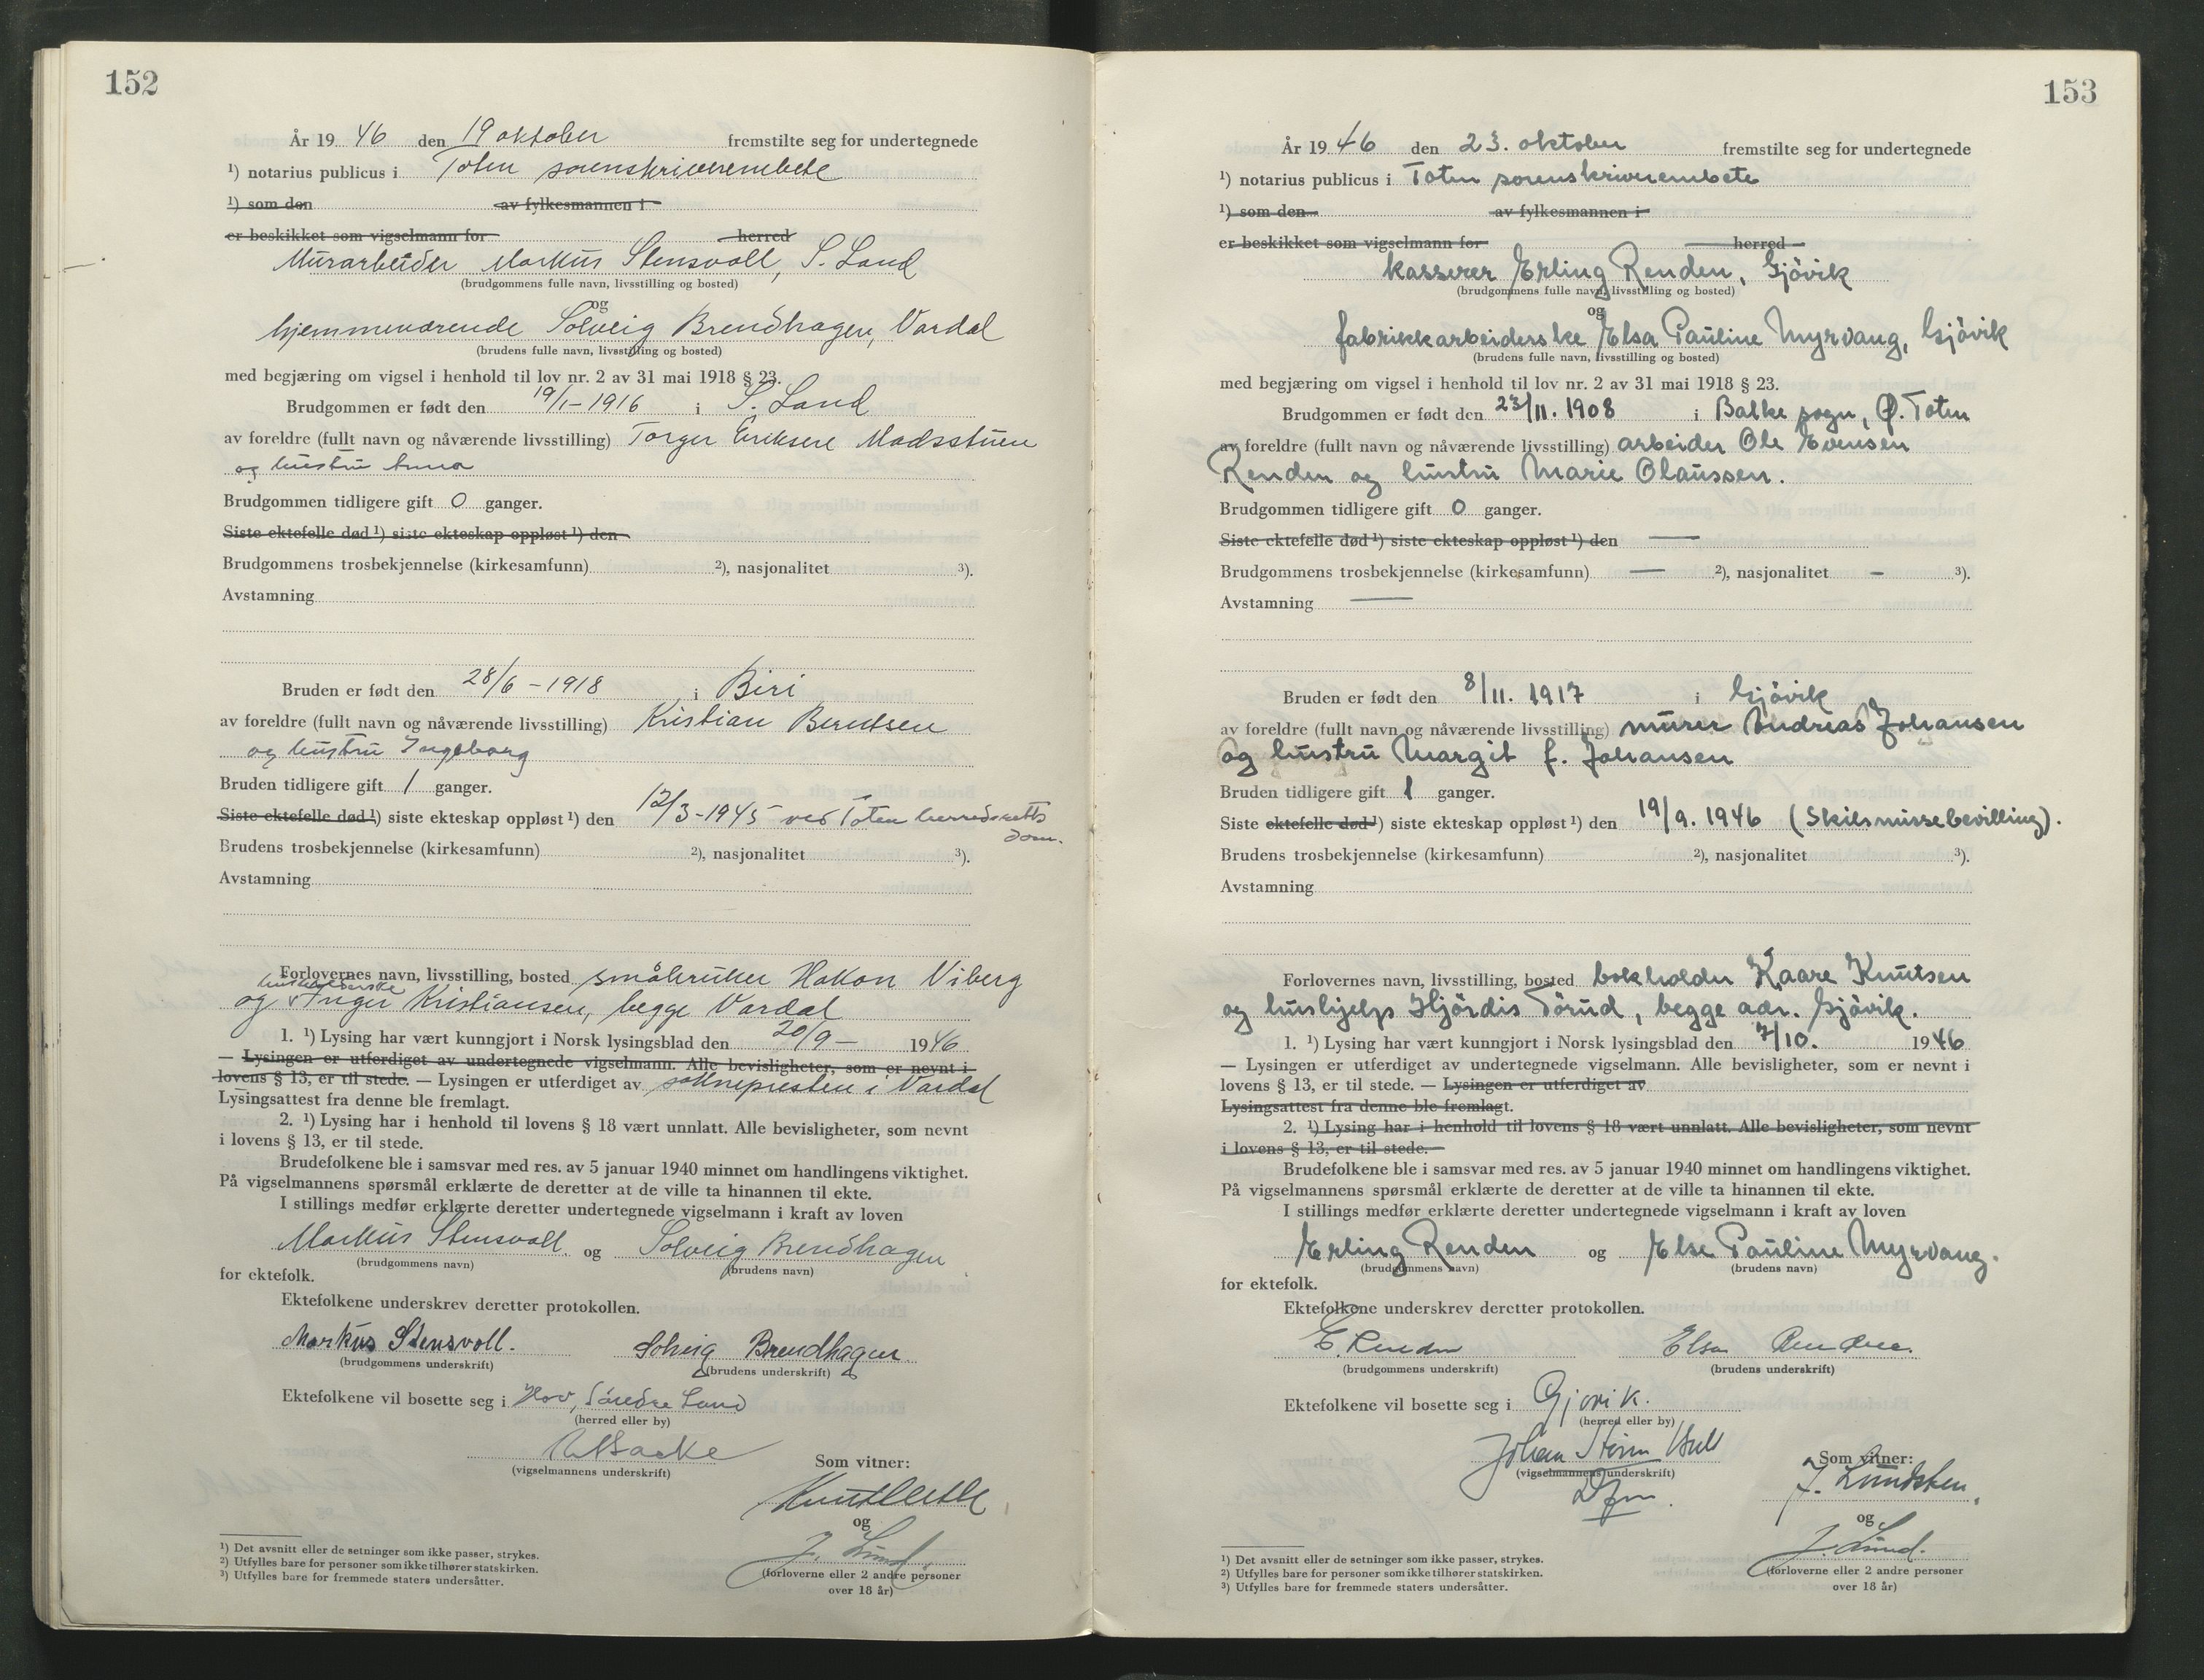 152
År 1946 den 19 oktober fremstilte seg for undertegnede
¹) notarius publicus i Toten sorenskriverembete
¹) som den av fylkesmannen i
er beskikket som vigselmann for herred
Murarbeider Markus Stensvoll, S. Land
(brudgommens fulle navn, livsstilling og bosted)
og
hjemmeværende Solveig Brendhagen, Vardal
(brudens fulle navn, livsstilling og bosted)
med begjæring om vigsel i henhold til lov nr. 2 av 31 mai 1918 § 23.
Brudgommen er født den 19/1-1916 i S. Land
av foreldre (fullt navn og nåværende livsstilling) Torger Eriksen Madsstuen
og hustru Anna
Brudgommen tidligere gift 0 ganger.
Siste ektefelle død ¹) siste ekteskap oppløst ¹) den
Brudgommens trosbekjennelse (kirkesamfunn) ²), nasjonalitet ³).
Avstamning
Bruden er født den 28/6-1918 i Biri
av foreldre (fullt navn og nåværende livsstilling) Kristian Berntsen
og hustru Ingeborg
Bruden tidligere gift 1 ganger.
Siste ektefelle død ¹) siste ekteskap oppløst ¹) den 12/3-1945 ved Toten herredsretts
dom.
Brudens trosbekjennelse (kirkesamfunn) ²), nasjonalitet ³).
Avstamning
Forlovernes navn, livsstilling, bosted småbruker Hakon Viberg
husholderske
og Inger Kristiansen, begge Vardal
1. ¹) Lysing har vært kunngjort i Norsk lysingsblad den 20/9- 1946
— Lysingen er utferdiget av undertegnede vigselmann. Alle bevisligheter, som er nevnt i
lovens § 13, er til stede. — Lysingen er utferdiget av soknepresten i Vardal
Lysingsattest fra denne ble fremlagt.
2. ¹) Lysing har i henhold til lovens § 18 vært unnlatt. Alle bevisligheter, som nevnt
i lovens § 13, er til stede.
Brudefolkene ble i samsvar med res. av 5 januar 1940 minnet om handlingens viktighet.
På vigselmannens spørsmål erklærte de deretter at de ville ta hinannen til ekte.
I stillings medfør erklærte deretter undertegnede vigselmann i kraft av loven
Markus Stensvoll og Solveig Brendhagen
(brudgommens navn) (brudens navn)
for ektefolk.
Ektefolkene underskrev deretter protokollen.
Markus Stensvoll. Solveig Brendhagen
(brudgommens underskrift) (brudens underskrift)
Ektefolkene vil bosette seg i Hov, Søndre Land
(herred eller by)
(vigselmannens underskrift)
Som vitner:
og
J. Lund.
(forloverne eller 2 andre personer
over 18 år)
¹) Det avsnitt eller de setninger som ikke passer, strykes.
²) Utfylles bare for personer som ikke tilhører statskirken.
³) Utfylles bare for fremmede staters undersåtter.
153
År 1946 den 23. oktober fremstilte seg for undertegnede
¹) notarius publicus i Toten sorenskriverembete
¹) som den av fylkesmannen i
er beskikket som vigselmann for herred
kasserer Erling Renden, Gjövik
(brudgommens fulle navn, livsstilling og bosted)
og
fabrikkarbeiderske Elsa Pauline Myrvang, Gjövik
(brudens fulle navn, livsstilling og bosted)
med begjæring om vigsel i henhold til lov nr. 2 av 31 mai 1918 § 23.
Brudgommen er født den 23/11. 1908 i Balke sogn, Ø. Toten
av foreldre (fullt navn og nåværende livsstilling) arbeider Ole Evensen
Renden og hustru Marie Olaussen.
Brudgommen tidligere gift 0 ganger.
Siste ektefelle død ¹) siste ekteskap oppløst ¹) den —
Brudgommens trosbekjennelse (kirkesamfunn) — ²), nasjonalitet – ³).
Avstamning —
Bruden er født den 8/11. 1917 i Gjövik
av foreldre (fullt navn og nåværende livsstilling) murer Andreas Johansen
og hustru Margit f. Johansen
Bruden tidligere gift 1 ganger.
Siste ektefelle død ¹) siste ekteskap oppløst ¹) den 19/9. 1946 (Skilsmissebevilling).
Brudens trosbekjennelse (kirkesamfunn) ²), nasjonalitet ³).
Avstamning
Forlovernes navn, livsstilling, bosted bokholder Kaare Knutsen
og hushjelp Hjördis Törud, begge adr. Gjövik.
1. ¹) Lysing har vært kunngjort i Norsk lysingsblad den 7/10. 1946
— Lysingen er utferdiget av undertegnede vigselmann. Alle bevisligheter, som er nevnt i
lovens § 13, er til stede. — Lysingen er utferdiget av
Lysingsattest fra denne ble fremlagt.
2. ¹) Lysing har i henhold til lovens § 18 vært unnlatt. Alle bevisligheter, som nevnt
i lovens § 13, er til stede.
Brudefolkene ble i samsvar med res. av 5 januar 1940 minnet om handlingens viktighet.
På vigselmannens spørsmål erklærte de deretter at de ville ta hinannen til ekte.
I stillings medfør erklærte deretter undertegnede vigselmann i kraft av loven
Erling Renden og Else Pauline Myrvang.
(brudgommens navn) (brudens navn)
for ektefolk.
Ektefolkene underskrev deretter protokollen.
E. Renden Elsa Renden.
(brudgommens underskrift) (brudens underskrift)
Ektefolkene vil bosette seg i Gjøvik.
(herred eller by)
Johan Storm
(vigselmannens underskrift)
Som vitner:
J. Lundsten.
og
J. Lund.
(forloverne eller 2 andre personer
over 18 år)
¹) Det avsnitt eller de setninger som ikke passer, strykes.
²) Utfylles bare for personer som ikke tilhører statskirken.
³) Utfylles bare for fremmede staters undersåtter.